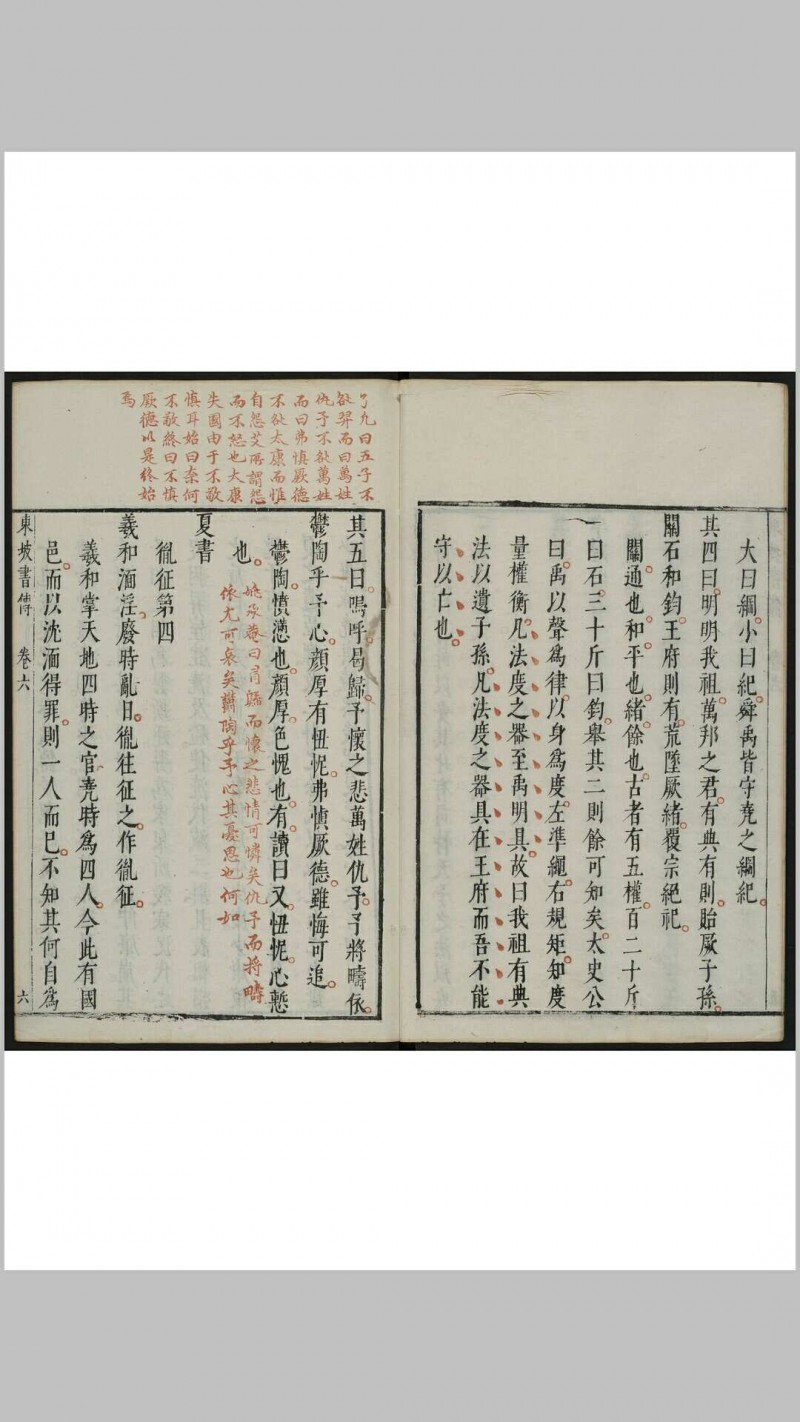 大曰綱小曰紀舜禹皆守堯之綱紀
其四曰明明我祖萬邦之君有典有則貽厥子孫
關石和鈞王府則有荒墜厥緒覆宗絕祀
關通也和平也緒餘也古者有五權百二十斤
曰石三十斤曰鈞舉其二則餘可知矣太史公
曰禹以聲爲律以身爲度左準繩右規矩知度
量權衡凡法度之器至禹明具故曰我祖有典
法以遺子孫凡法度之器具在王府而吾不能
守以亡也
九曰五子不
欲羿而曰萬姓
仇予不欲萬姓
而曰弗慎厥德
不欲太康而惟
自怨艾所謂怨
而不怒也太康
失國由于不敬
慎耳始曰奈何
不敬終曰不慎
厥德以是終始
焉
其五曰嗚呼曷歸予懷之悲萬姓仇予予將疇依
鬱陶乎予心顔厚有忸怩弗慎厥德雖悔可追
鬱陶憤懣也顔厚色愧也有讀曰又忸怩心慙
也
姚承菴曰曷歸而懷之悲情可憐矣仇予而將疇
依尤可哀矣鬱陶乎予心其憂思也何如
夏書
胤征第四
羲和湎淫廢時亂日胤往征之作胤征
羲和掌天地四時之官堯時爲四人今此有國
邑而以沈湎得罪則一人而已不知其何自爲
東坡書傳 卷六 六